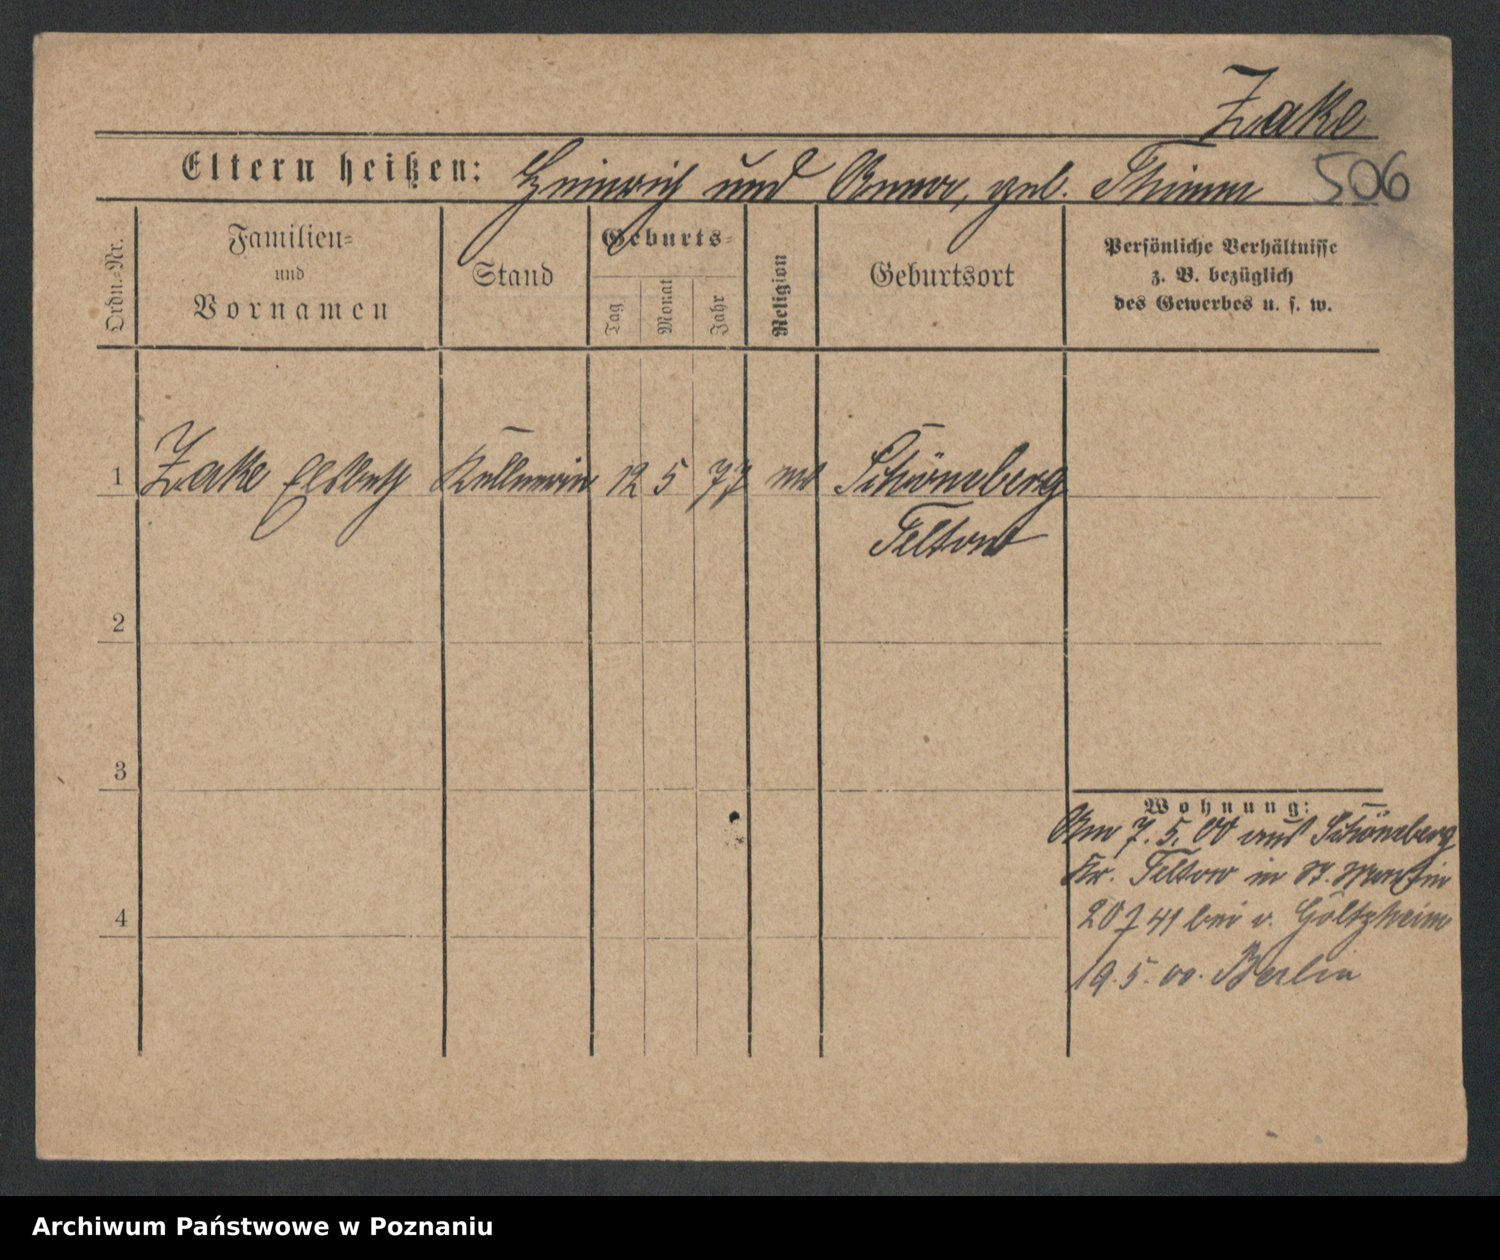 Zake
506
Eltern heißen: Heinrich und Anna, geb. Thimm
Ordn.-Nr.
Familien-
und
Vornamen
Stand
Geburts-
Tag
Monat
Jahr
Religion
Geburtsort
Persönliche Verhältnisse
z. B. bezüglich
des Gewerbes u. s. w.
1 Zake Elsbeth Kellnerin 12 5 77 Schöneberg
Teltow
2
3
4
Wohnung:
Am 7. 5. 00 aus Schöneberg
Kr. Teltow in St. Martin
20 41 bei v. Goltzheim
19. 5. 00. Berlin
Archiwum Państwowe w Poznaniu